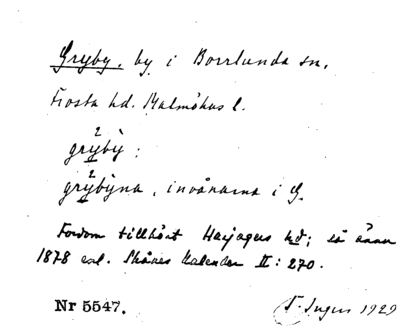 Gryby, by i Borrlunda sn,
Frosta hd. Malmöhus l.
2
gryby :
2
grybyna, invånarna i G.
Fordom tillhört Harjagers hd; så ännu
1878 enl. Skånes Kalender II: 270.
Nr 5547.
Ingers 1929